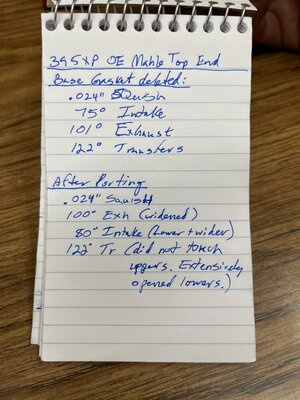 395XP OE Mahle Top End
Base Gasket deleted:
.024" Squish
75° Intake
101° Exhaust
122° Transfers
After Porting
.024" Squish
100° Exh (widened)
80° Intake (Lower + wider)
122° Tr (did not touch
uppers. Extensively
opened lowers.)